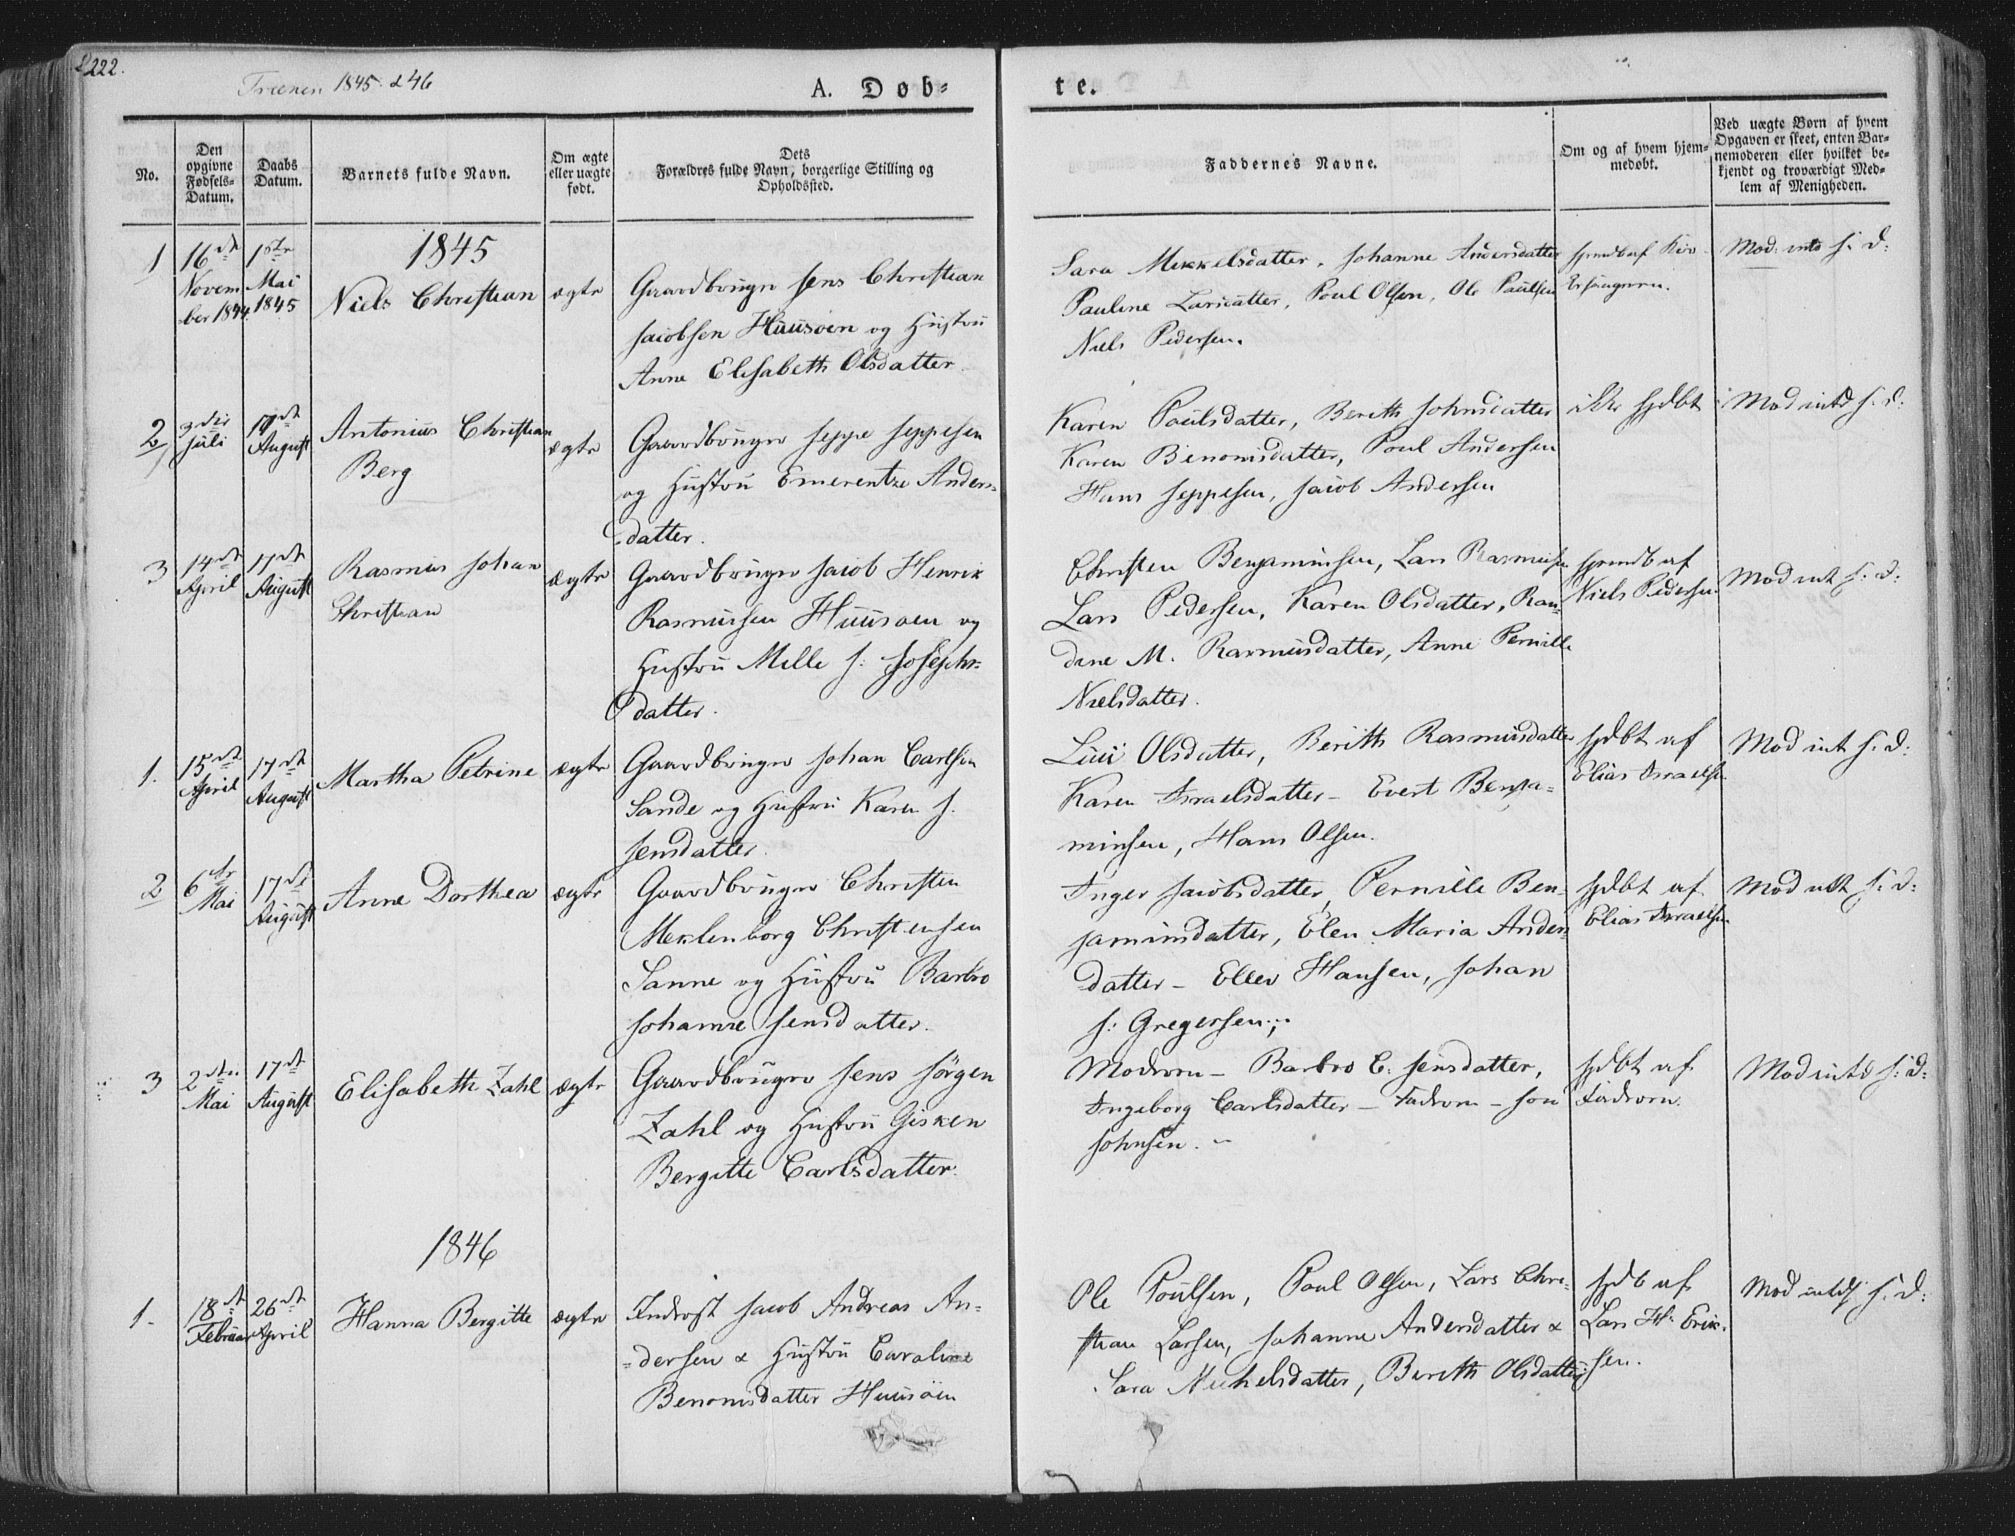 222.
Trænen 1845 & 46
A. Døb-
te.
No.
Den opgivne Fødsels-Datum.
Daabs Datum.
Barnets fulde Navn.
Om ægte eller uægte født.
Dets Forældres fulde Navn, borgerlige Stilling og Opholdssted.
Faddernes Navne.
Om og af hvem hjemmedøbt.
Ved uægte Børn af hvem Opgaven er skeet, enten Barnemoderen eller hvilket bekjendt og troværdigt Medlem af Menigheden.
1845
1
16de Novem
ber 1844
1ste Mai
1845
Niels Christian
ægte
Gaardbruger Jens Christian
Jacobsen Huusøen og Hustru
Anne Elisabeth Olsdatter
Sara Mikkelsdatter, Johanne Andersdatter
Pauline Larsdatter, Poul Olsen, Ole Paulsen
Niels Pedersen.
hjemdb af
Mod: inte S: d:
2
3die
Juli
17de
August
Antonius Christian
Berg
ægte
Gaardbruger Jeppe Jeppesen
og Hustru Emerentze Anders-
datter.
Karen Paulsdatter, Bereth Johnsdatter
Karen Benonisdatter, Poul Andersen
Hans Jeppesen, Jacob Andersen
ikke hjdbt
Mod inte S: d:
3
14de
April
17de
August
Rasmus Johan
Christian
ægte
Gaardbruger Jacob Henrik
Rasmussen Huusøen og
Hustru Mille J: Josephs-
datter.
Christen Benjaminsen, Lars Rasmusen
Lars Pedersen, Karen Olsdatter, Ran-
dine M. Rasmusdatter, Anne Pernille
Nielsdatter.
hjemdb af
Niels Pedersen
Mod int S: d:
1.
15de
April
17de
August
Martha Petrine
ægte
Gaardbruger Johan Carlsen
Sande og Hustru Karen J.
Jensdatter.
Olsdatter, Berith Rasmusdatter
Karen Israelsdatter - Evert Benja-
minsen, Hans Olsen.
hjdbt af
Elias Israelsen
Mod int S: d:
2
6te
Mai
17de
August
Anne Dorthea
ægte
Gaardbruger Christen
Meklenborg Christensen
Sanne og Hustru Barbro
Johanne Jensdatter.
Inger Jacobsdatter, Pernille Ben-
jaminsdatter, Elen Maria Anders
datter - Eller Hansen, Johan
J: Gregersen;
hjdbt af
Elias Israelsen
Mod int S: d:
3
2den
Mai
17de
August
Elisabeth Zahl
ægte
Gaardbruger Jens Jørgen
Zahl og Hustru Gisken
Bergitte Carlsdatter.
Modren - Barbro C. Jensdatter,
Ingeborg Carlsdatter - Fadren - Jon
Johnsen. -
hjdbt af
Fadren.
Mod inte S: d:
1846
1.
18de
Februar
26de
April
Hanna Bergitte
ægte
Inderst Jacob Andreas An-
dersen & Hustru Caroline
Benonisdatter Huusøen
Ole Poulsen, Paul Olsen, Lars Chri-
stian Larsen, Johanne Andersdatter &
Sara Michelsdatter, Bereth Olsdatter
hjdb af
Lars H. Erik-
sen.
Mod inte S. d: